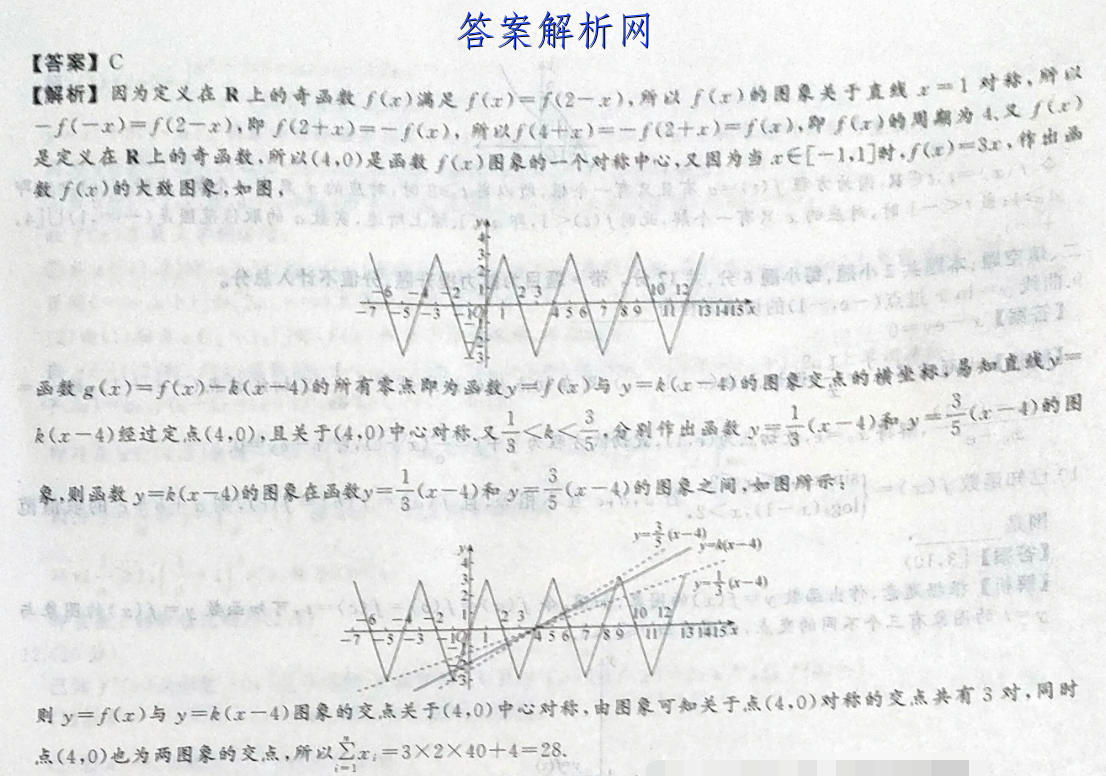 答案解析网
【答案】C
【解析】因为定义在 R 上的奇函数 f(x)满足 f(x)=f(2-x),所以 f(x)的图象关于直线 x=1 对称,所以
-f(-x)=f(2-x),即 f(2+x)=-f(x),所以f(4+x)=-f(2+x)=f(x),即 f(x)的周期为 4,又 f(x)
是定义在 R 上的奇函数,所以(4,0)是函数 f(x)图象的一个对称中心,又因为当 x∈[-1,1]时,f(x)=3x,作出函
数 f(x)的大致图象,如图,
y
4
3
2
-6 -4 -2 2 3 10 12
-7 -5 -3 -1 0 1 4 5 6 7 8 9 11 13 14 15 x
函数 g(x)=f(x)-k(x-4)的所有零点即为函数y=f(x)与 y=k(x-4)的图象交点的横坐标,易知直线y=
k(x-4)经过定点(4,0),且关于(4,0)中心对称.又1/3<k<3/5,分别作出函数 y=1/3(x-4)和 y=3/5(x-4)的图
象,则函数 y=k(x-4)的图象在函数y=1/3(x-4)和 y=3/5(x-4)的图象之间,如图所示:
y=3/5(x-4)
y=k(x-4)
y=1/3(x-4)
y
4
3
2
1
-6 -4 -2 2 3 10 12
-7 -5 -3 -1 0 1 4 5 6 7 8 9 11 13 14 15 x
则 y=f(x)与 y=k(x-4)图象的交点关于(4,0)中心对称,由图象可知关于点(4,0)对称的交点共有 3 对,同时
点(4,0)也为两图象的交点,所以∑xᵢ=3×2×40+4=28.